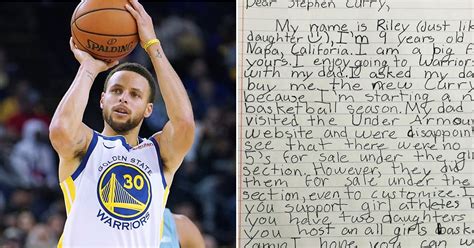 SPALDING
GOLDEN STATE
30
WARRIORS
Dear Stephen Curry,
My name is Riley (just lik
daughter ☺), I'm 9 years old
Napa, Califoria. I am a big f
yours. I enjoy going to Warriors
with my dad. I asked my da
buy me the new Curry
because I'm starting a
basketball season. My dad
visited the Under Armou
website and were disappoin
see that there were no
5's for sale under the gi
section. However, they did
them for sale under the
section, even to customize.
you support girl athletes
you have two daughters
you host an all girls bask